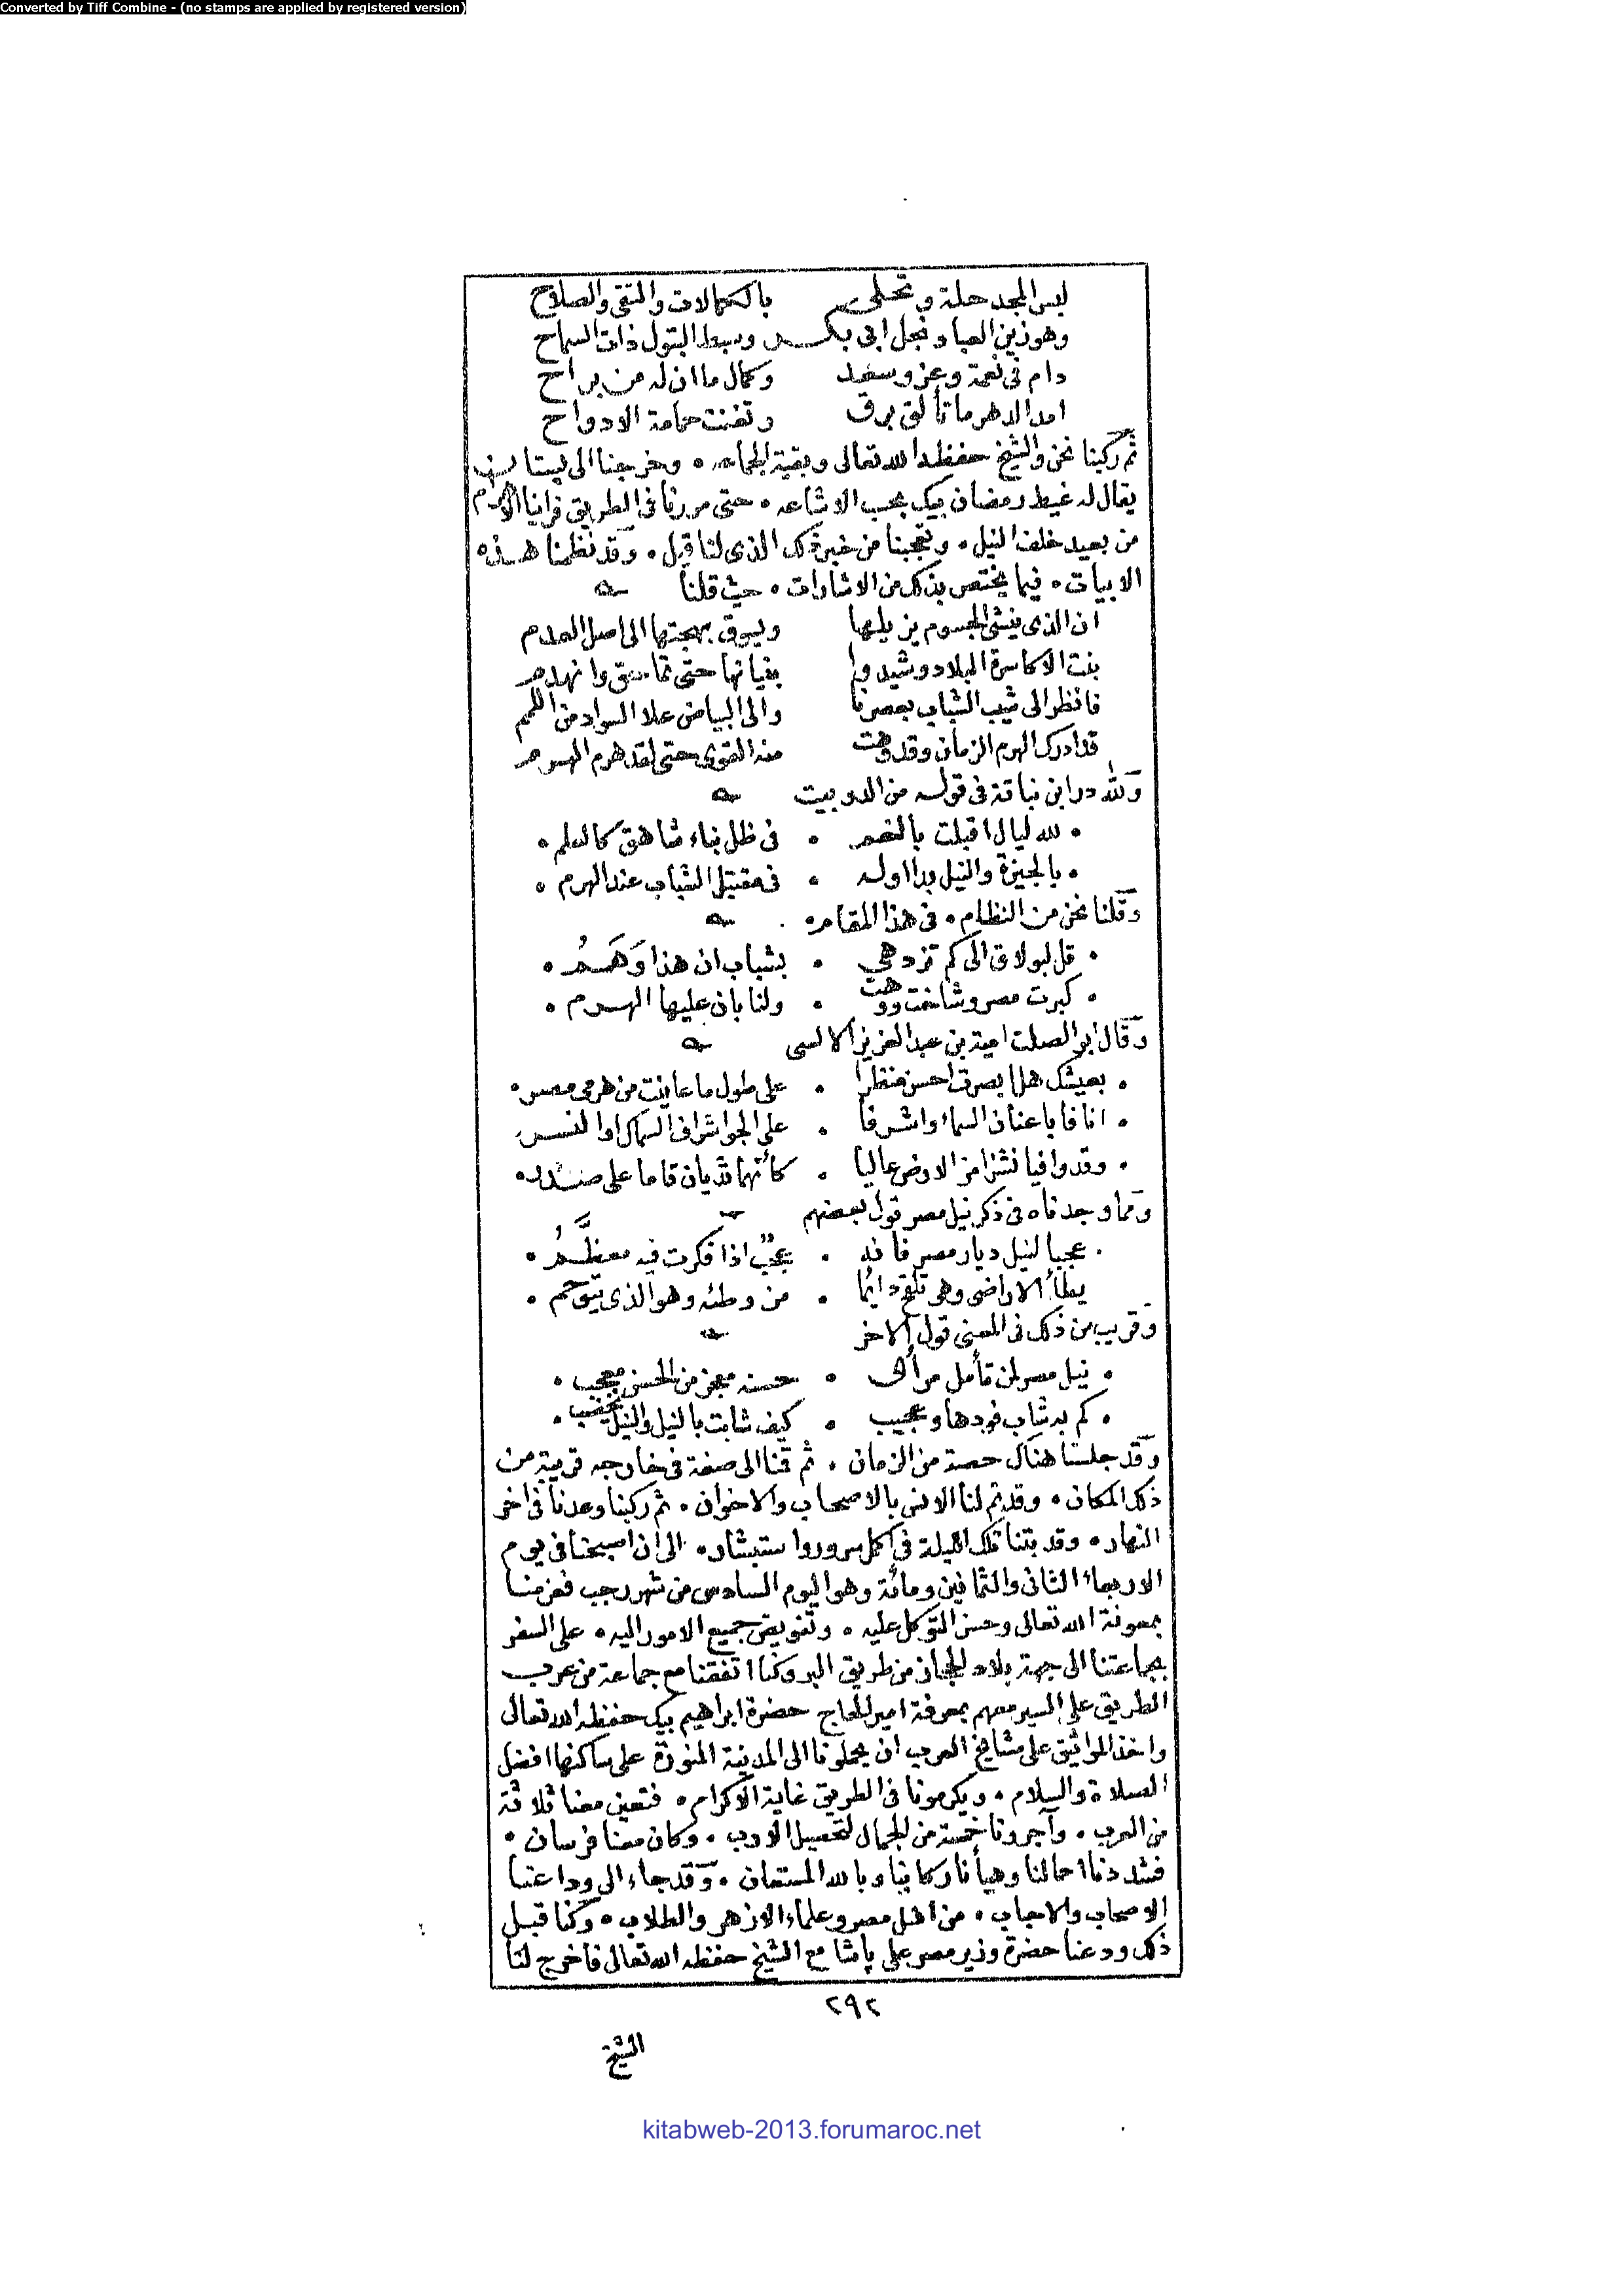 Converted by Tiff Combine - (no stamps are applied by registered version)
لبس المجد حلة وتحلى بالكمالات والتقى والصلاح
وهو زين العباد نجل ابى بكر وسبط البتول ذات السماح
دام فى نعمة وعز وسعد وكمال ما ان له من براح
امد الدهر ما تألق برق وتغنت حمامة الادواح
ثم ركبنا نحن والشيخ حفظه الله تعالى وبقية الجماعه ٠ وخرجنا الى بستان
يقال له غيط رمضان بيك بحب الاشاعه ٠ حتى مررنا فى الطريق فراينا الاهرام
من بعيد خلف النيل ٠ وتعجبنا من خبر ذلك الذى لنا قيل ٠ وقد نظمنا هذه
الابيات ٠ فيما يختص بذلك من الاشارات ٠ حيث قلنا
ان الذى ينشى الجسوم يزيلها ويسوق بهجتها الى اصل العدم
بنت الاكاسرة البلاد وشيدوا بنيانها حتى تماسق وانهدم
فانظر الى شيب الشباب بعصرنا والى البياض علا السواد من اللمم
قد ادرك الهرم الزمان وقد وهت منه القوى حتى لقد هرم الهرم
ولله در ابن نباتة فى قوله من الدوبيت
٠ لله ليال اقبلت بالنعم ٠ فى ظل بناء شاهق كالعلم ٠
٠ بالجيزة والنيل بدا اوله ٠ فى مقتبل الشباب عند الهرم ٠
وقلنا نحن من النظام ٠ فى هذا المقام ٠
٠ قل لبولاق الى كم تزدهى ٠ بشباب ان هذا وَهَمُ ٠
٠ كبرت مصر وشاخت ووهت ٠ ولنا بان عليها الهرم ٠
وقال ابو الصلت امية بن عبد العزيز الالسى
٠ بعيشك هل ابصرت احسن منظرا ٠ على طول ما عاينت من هرمى مصر ٠
٠ انافا باعنان السماء واشرفا ٠ على الجو اشراف السماك او النسر
٠ وقد وافيا نشزا من الارض عاليا ٠ كأنهما ثديان قاما على صدر ٠
ومما وجدناه فى ذكر نيل مصر قول بعضهم
٠ عجبا لنيل ديار مصر فانه ٠ عجبٌ اذا فكرت فيه معظَّمُ ٠
يطأ الاراضى وهى تلقح دائما ٠ من وطئه وهو الذى يتوحم ٠
وقريب من ذلك فى المعنى قول الاخر
٠ نيل مصر لمن تأمل مرأى ٠ حسنه معجز من الحسن معجب ٠
٠ كم به شاب فودها وعجيب ٠ كيف شابت بالنيل والنيل يخضب ٠
وقد جلسنا هناك حصة من الزمان ٠ ثم قمنا الى صفة فى خارجه قريبة من
ذلك المكان ٠ وقد تم لنا الانس بالاصحاب والاخوان ٠ ثم ركبنا وعدنا فى اخر
النهار ٠ وقد بتنا تلك الليلة فى اكمل سرور واستبشار ٠ الى ان اصبحنا فى يوم
الاربعاء الثانى والثمانين ومائة وهو اليوم السادس من شهر رجب فعزمنا
بمعونة الله تعالى وحسن التوكل عليه ٠ وتفويض جميع الامور اليه ٠ على السفر
بجماعتنا الى جهة بلاد الحجاز من طريق البر وكنا اتفقنا مع جماعة من عرب
الطريق على السير معهم بمعرفة امير الحاج حضرة ابراهيم بيك حفظه الله تعالى
واخذ المواثيق على مشايخ العرب ان يحملونا الى المدينة المنورة على ساكنها افضل
الصلاة والسلام ٠ ويكرمونا فى الطريق غاية الاكرام ٠ فتعين معنا ثلاثة
من العرب ٠ وآجرونا خمسة من الجمال لتحصيل الارب ٠ وكان معنا فرسان ٠
فشددنا احمالنا وهيأنا ركابنا وبالله المستعان ٠ وقد جاء الى وداعنا
الاصحاب والاحباب ٠ من اهل مصر وعلماء الازهر والطلاب ٠ وكنا قبل
ذلك ودعنا حضرة وزير مصر على پاشا مع الشيخ حفظه الله تعالى فاخرج لنا
٢٩٢
الشيخ
kitabweb-2013.forumaroc.net